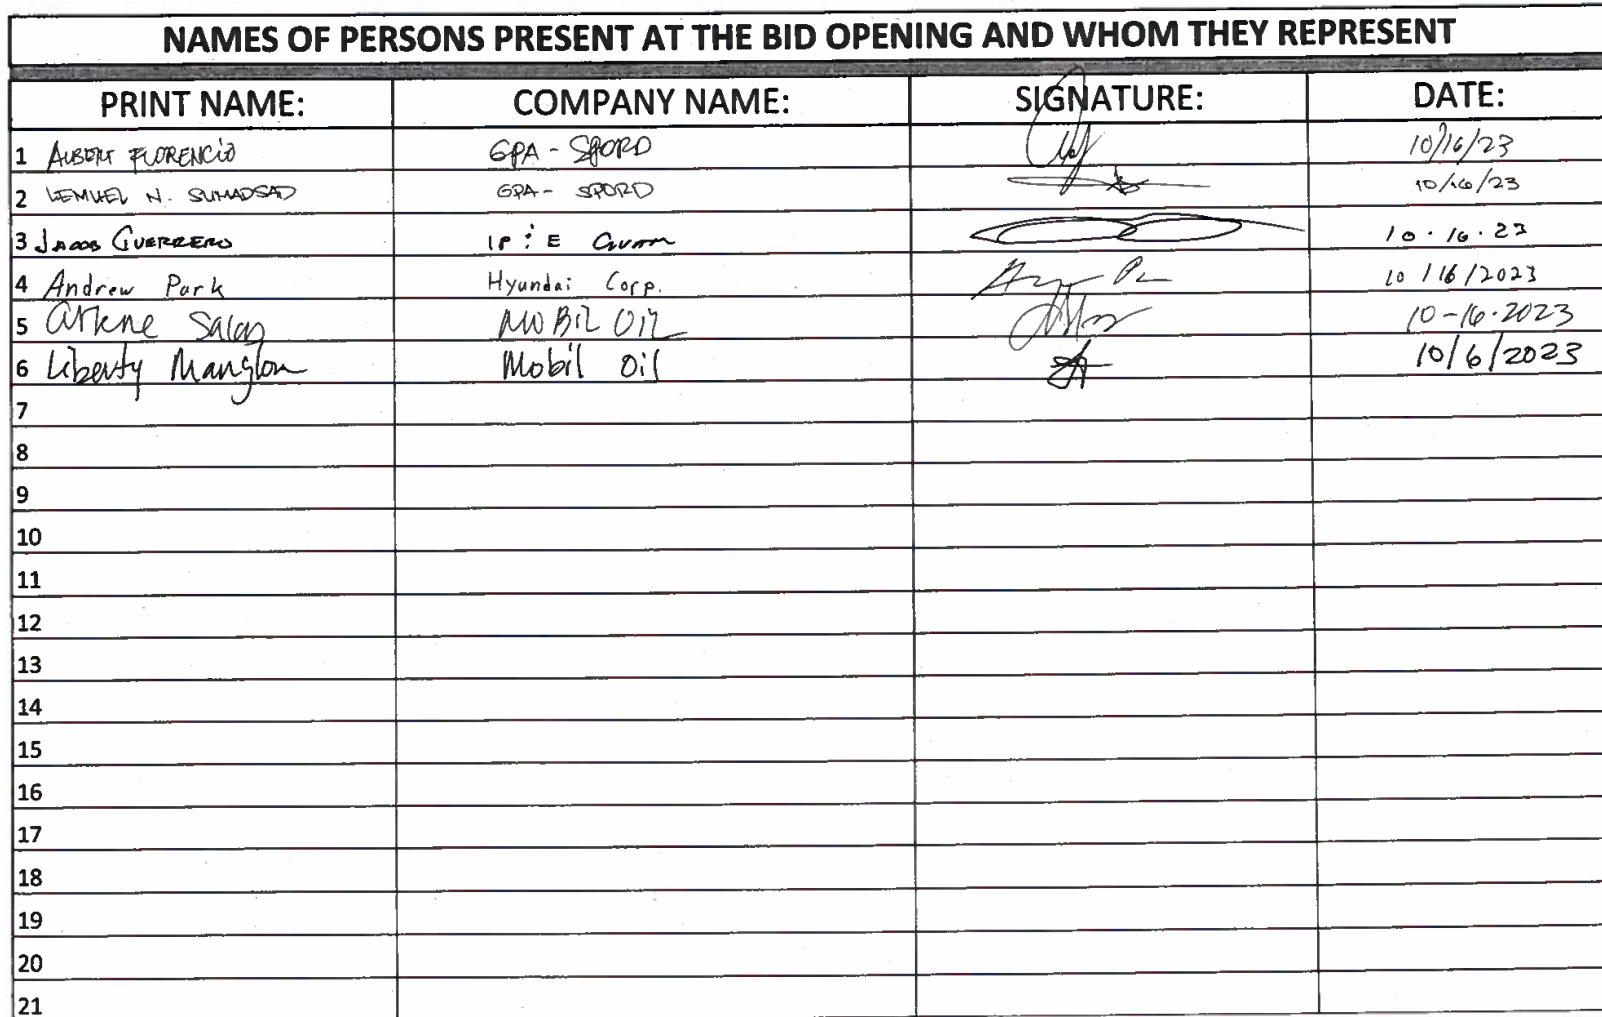 NAMES OF PERSONS PRESENT AT THE BID OPENING AND WHOM THEY REPRESENT
PRINT NAME: COMPANY NAME: SIGNATURE: DATE:
1 ALBERT FLORENCIO GPA - SPORD 10/16/23
2 LEMUEL N. SUMADSAD GPA - SPORD 10/16/23
3 JACOB GUERRERO IP & E Guam 10.16.23
4 Andrew Park Hyundai Corp. 10/16/2023
5 Arlene Salas MOBIL OIL 10-16-2023
6 Liberty Manglona Mobil Oil 10/6/2023
7
8
9
10
11
12
13
14
15
16
17
18
19
20
21